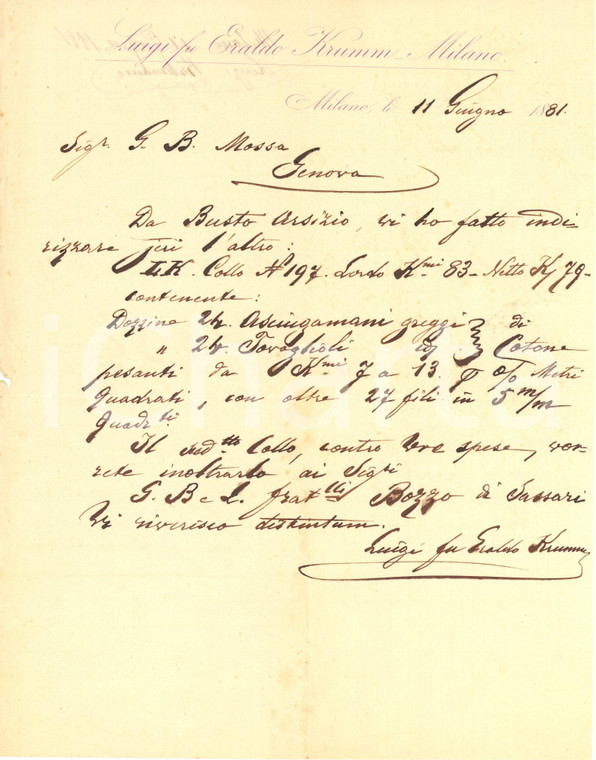 Luigi fu Eraldo Krumm - Milano.
Milano, li 11 Giugno 1881.
Sigr. G. B. Mossa
Genova
Da Busto Arsizio, vi ho fatto indi
rizzare jeri l'altro:
LK. Collo No 197. Lordo Kmi 83 - Netto K 79 -
contenente:
Dozzine 24. Asciugamani greggi } di
" 24. Tovaglioli } Cotone
pesanti da Kmi 7 a 13. p % Metri
quadrati, con oltre 27 fili in 5 m/m
quadrti
Il sudtto Collo, contro Vre spese, vor-
rete inoltrarlo ai Sigri
G. B e L. fratlli Bozzo di Sassari
Vi riverisco distintam.
Luigi fu Eraldo Krumm